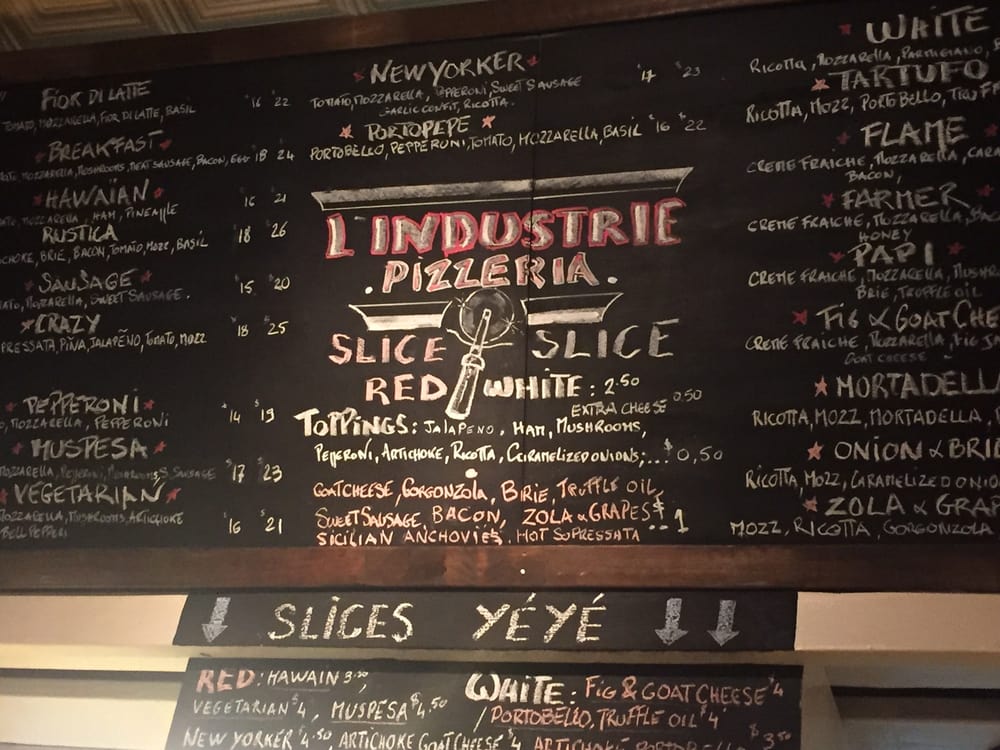 FIOR DI LATTE $16 $22
TOMATO, MOZZARELLA, FIOR DI LATTE, BASIL
BREAKFAST
MOZZARELLA, MUSHROOMS, MEAT SAUSAGE, BACON, EGG $18 24
HAWAIAN 16 21
MOZZARELLA, HAM, PINEAPPLE
RUSTICA 18 $26
BRIE, BACON, TOMATO, MOZZ, BASIL
SAUSAGE $15 $20
MOZZARELLA, SWEET SAUSAGE.
CRAZY $18 $25
PIÑA, JALAPEÑO, TOMATO, MOZZ
PEPPERONI $14 $19
MOZZARELLA, PEPPERONI
MUSPESA $17 $23
MOZZARELLA, PEPPERONI, MUSHROOMS, S. SAUSAGE
VEGETARIAN $16 $21
MOZZARELLA, MUSHROOMS, ARTICHOKE
BELL PEPPER
NEW YORKER $17 $23
TOMATO, MOZZARELLA, PEPPERONI, SWEET SAUSAGE
GARLIC CONFIT, RICOTTA.
PORTOPEPE
PORTOBELLO, PEPPERONI, TOMATO, MOZZARELLA, BASIL $16 $22
L'INDUSTRIE
.PIZZERIA.
SLICE SLICE
RED WHITE: 2.50
EXTRA CHEESE 0.50
TOPPINGS: JALAPENO, HAM, MUSHROOMS,
PEPPERONI, ARTICHOKE, RICOTTA, CARAMELIZED ONIONS;... $0,50
GOAT CHEESE, GORGONZOLA, BRIE, TRUFFLE OIL,
SWEET SAUSAGE, BACON, ZOLA & GRAPES $1
SICILIAN ANCHOVIES. HOT SOPRESSATA
WHITE
RICOTTA, MOZZARELLA, PARMIGIANO,
TARTUFO
RICOTTA, MOZZ, PORTOBELLO,
FLAME
CREME FRAICHE, MOZZARELLA,
BACON,
FARMER
CREME FRAICHE, MOZZARELLA,
HONEY
PAPI
CREME FRAICHE, MOZZARELLA,
BRIE, TRUFFLE OIL
FIG & GOAT
CREME FRAICHE, MOZZARELLA, FIG
GOAT CHEESE
MORTADELLA
RICOTTA, MOZZ, MORTADELLA,
ONION &
RICOTTA, MOZZ,
ZOLA &
MOZZ, RICOTTA, GORGONZOLA
SLICES YÉYÉ
RED: HAWAIN 3.50,
VEGETARIAN $4, MUSPESA $4.50
NEW YORKER $4.50, ARTICHOKE GOAT CHEESE $4
WHITE: FIG & GOAT CHEESE $4
/ PORTOBELLO, TRUFFLE OIL $4
$3.50